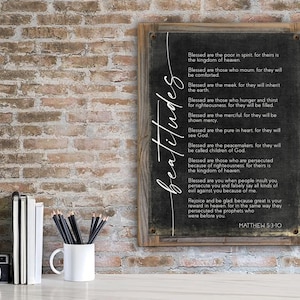 beatitudes
Blessed are the poor in spirit, for theirs is
the kingdom of heaven.
Blessed are those who mourn, for they will
be comforted.
Blessed are the meek, for they will inherit
the earth.
Blessed are those who hunger and thirst
for righteousness, for they will be filled.
Blessed are the merciful, for they will be
shown mercy.
Blessed are the pure in heart, for they will
see God.
Blessed are the peacemakers, for they will
be called children of God.
Blessed are those who are persecuted
because of righteousness, for theirs is
the kingdom of heaven.
Blessed are you when people insult you,
persecute you and falsely say all kinds of
evil against you because of me.
Rejoice and be glad, because great is your
reward in heaven, for in the same way they
persecuted the prophets who
were before you.
MATTHEW 5:3-10